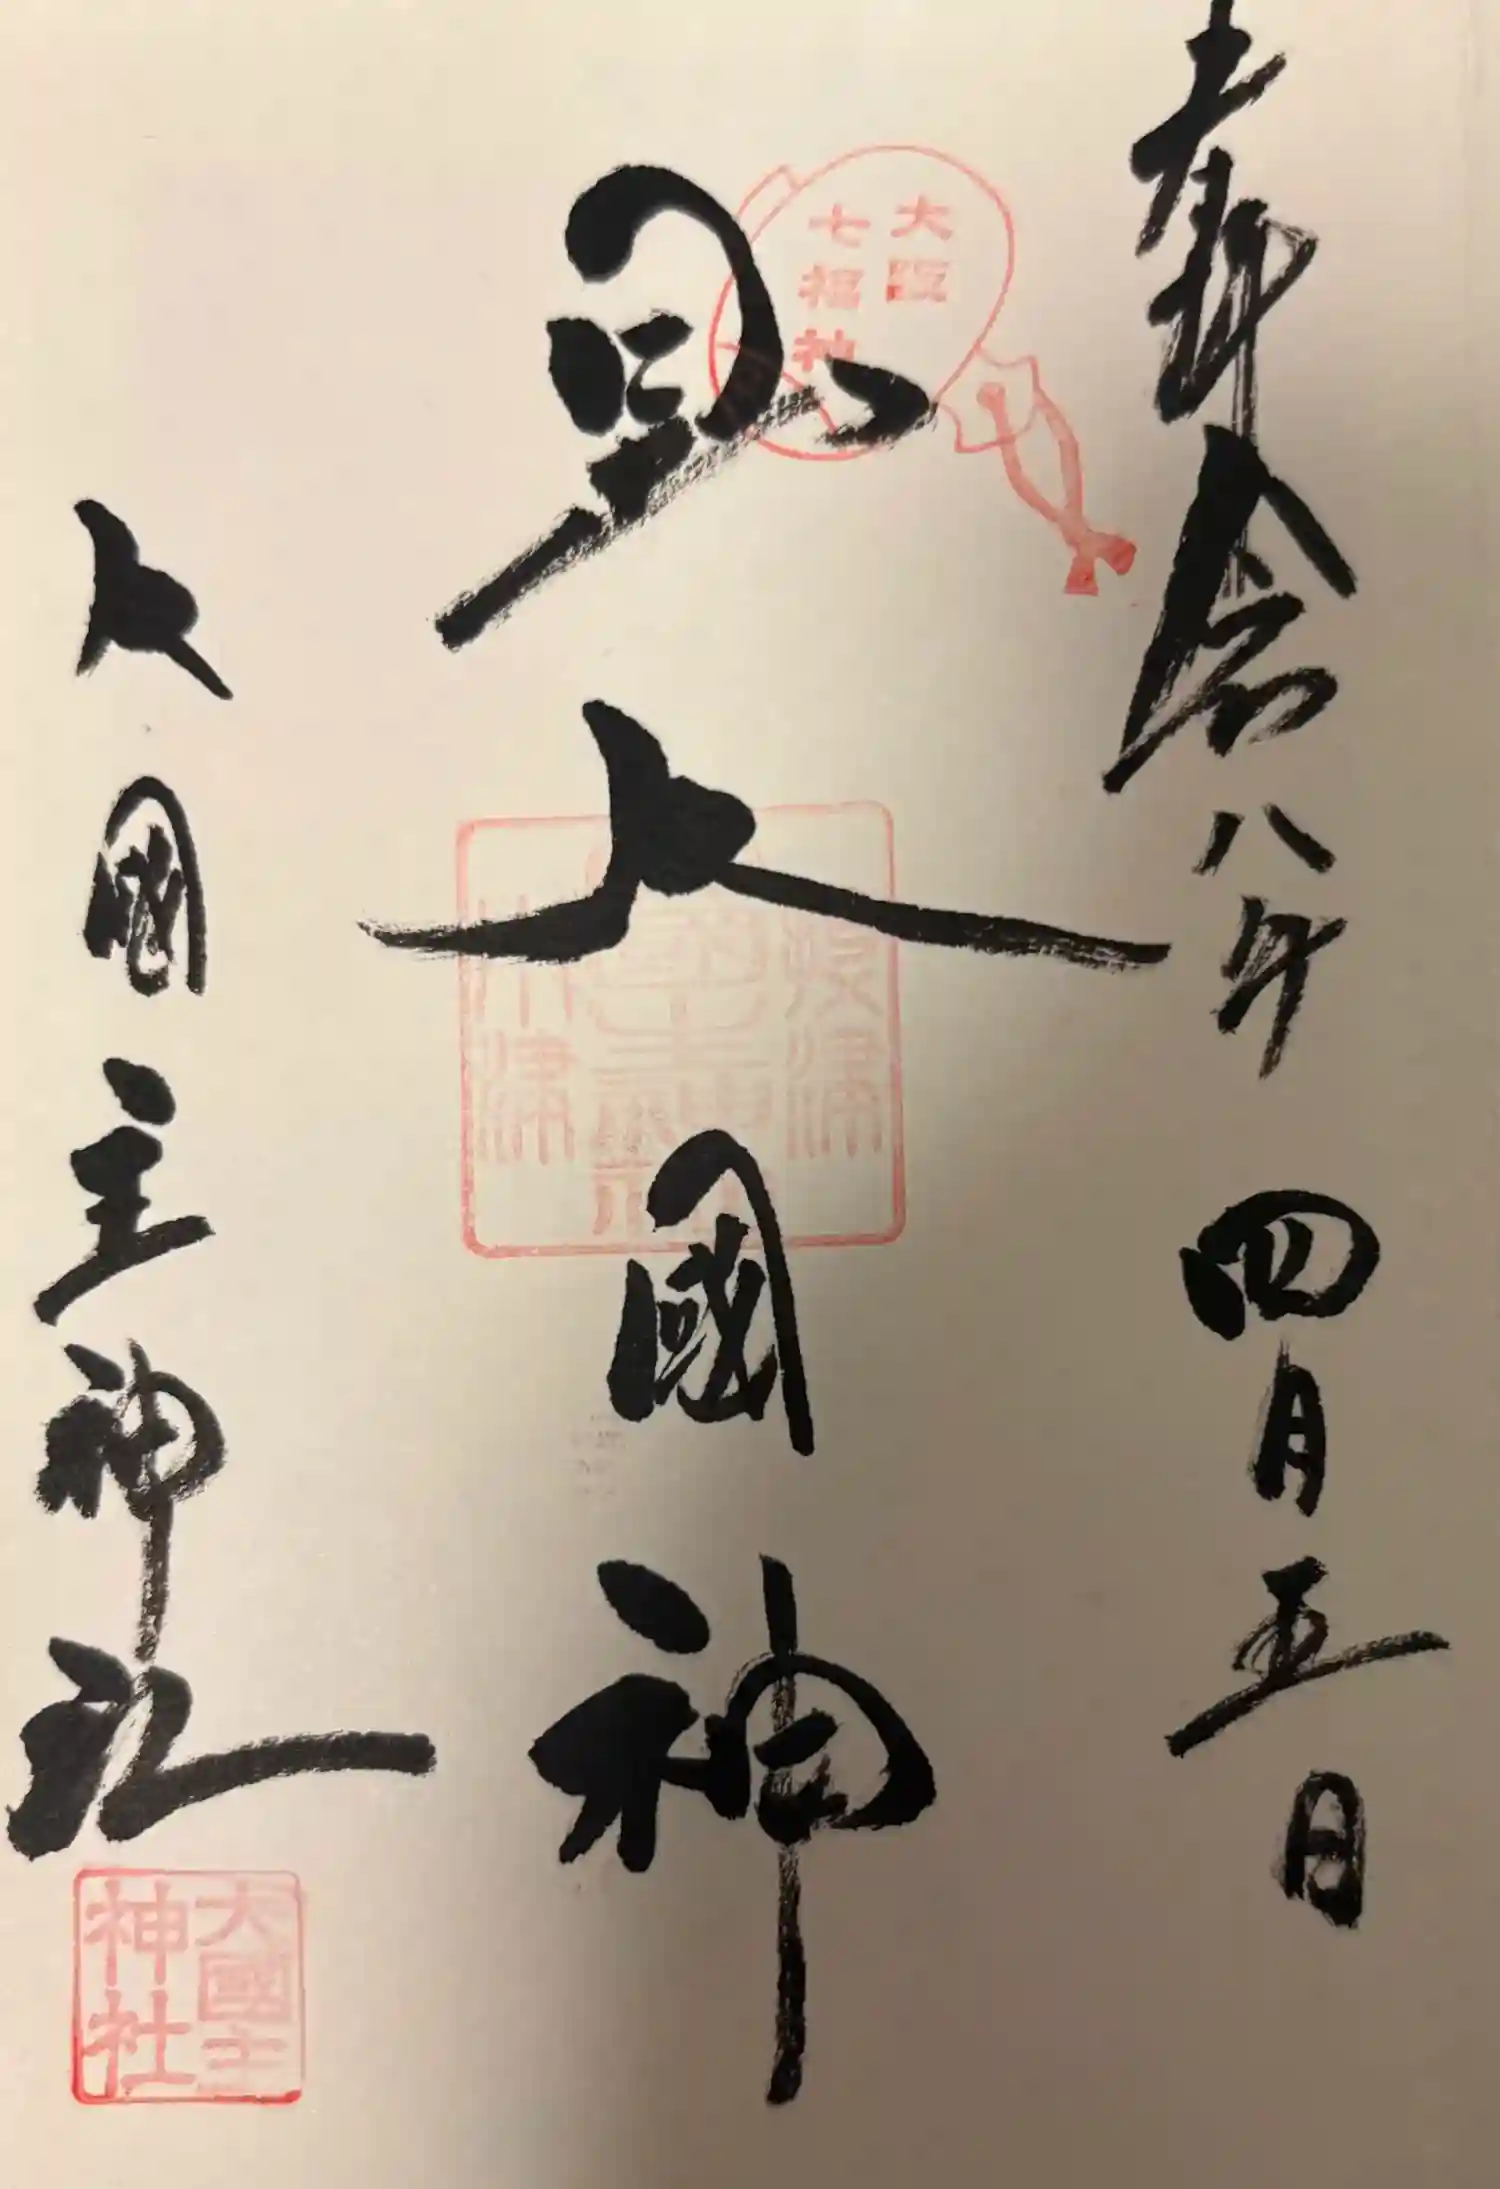 奉拝
令和八年 四月五日
大阪
七福神
日出大國神
大國主神社
大國主
神社